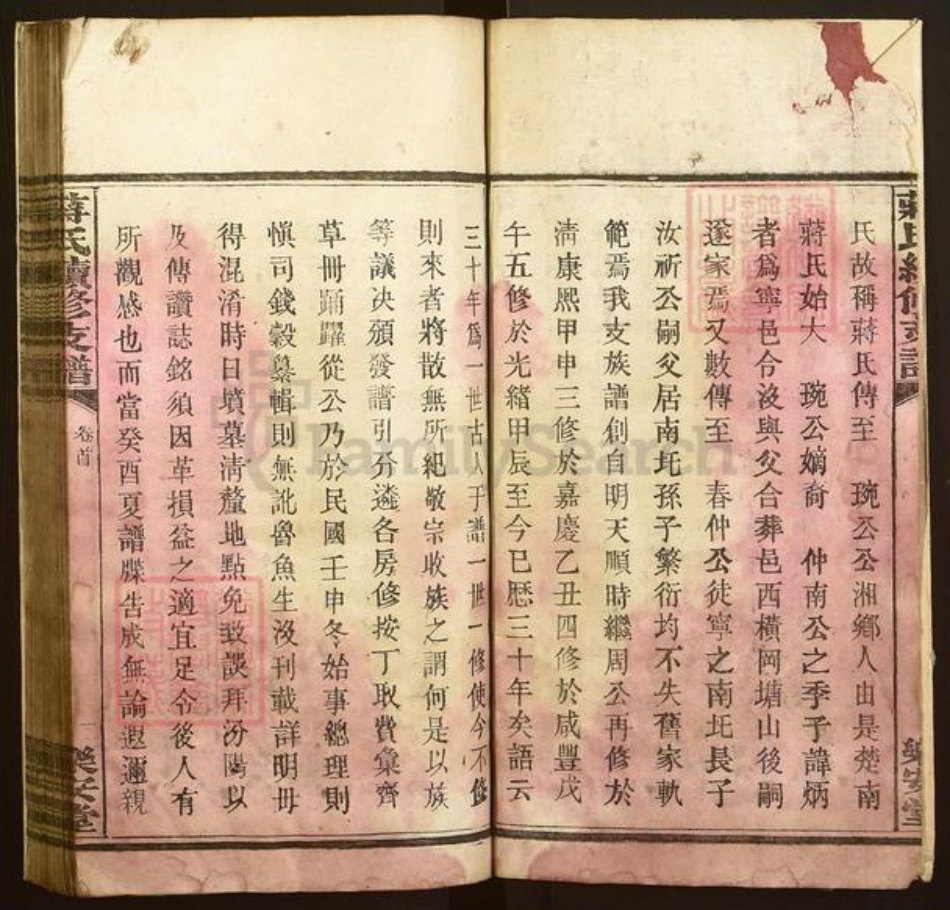 氏故稱蔣氏傳至　琬公公湘鄉人由是楚南
蔣氏始大　琬公嫡裔　仲南公之季子諱炳
者爲寧邑令沒與父合葬邑西橫岡塘山後嗣
遂家焉又數傳至　春仲公徒寧之南圫長子
汝祈公嗣父居南圫孫子繁衍均不失舊家軌
範焉我支族譜創自明天順時繼周公再修於
清康熙甲申三修於嘉慶乙丑四修於咸豐戊
午五修於光緒甲辰至今已歷三十年矣語云
三十年爲一世古人于譜一世一修使今不修
則來者將散無所紀敬宗收族之謂何是以族
等議決頒發譜引分遴各房修按丁取費彙齊
草冊踊躍從公乃於民國壬申冬始事總理則
愼司錢穀纂輯則無訛魯魚生沒刊載詳明毋
得混淆時日墳墓淸釐地點免致誤拜汾陽以
及傳讚誌銘須因革損益之適宜足令後人有
所觀感也而當癸酉夏譜牒告成無論遐邇親
蔣氏續修支譜
卷首
一
樂安堂
FamilySearch